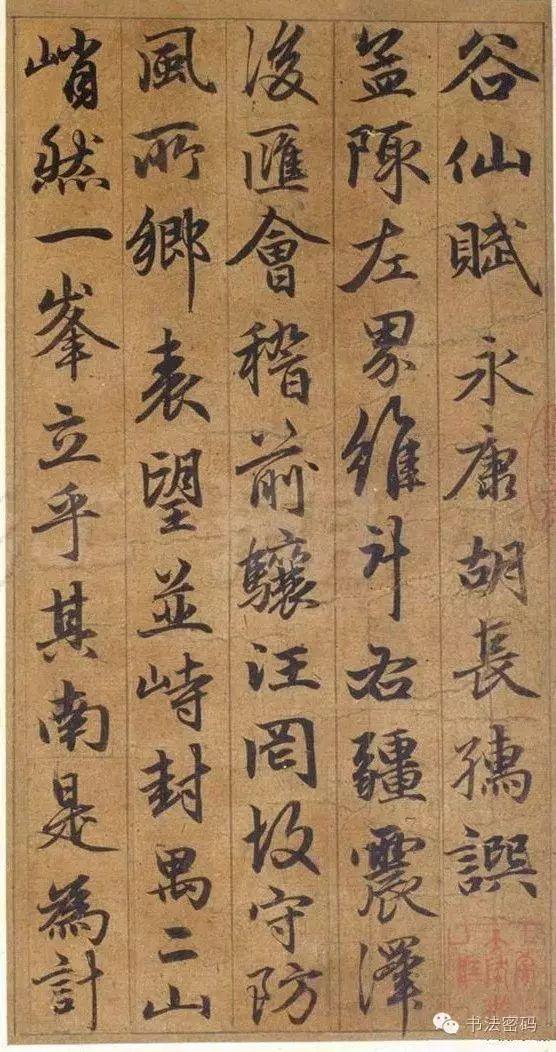 谷仙賦 永康胡長孺譔
孟陬左界維斗右疆震澤
後匯會稽前驤汪罔故守防
風所鄉表望並峙封禺二山
峭然一峯立乎其南是為計
书法密码